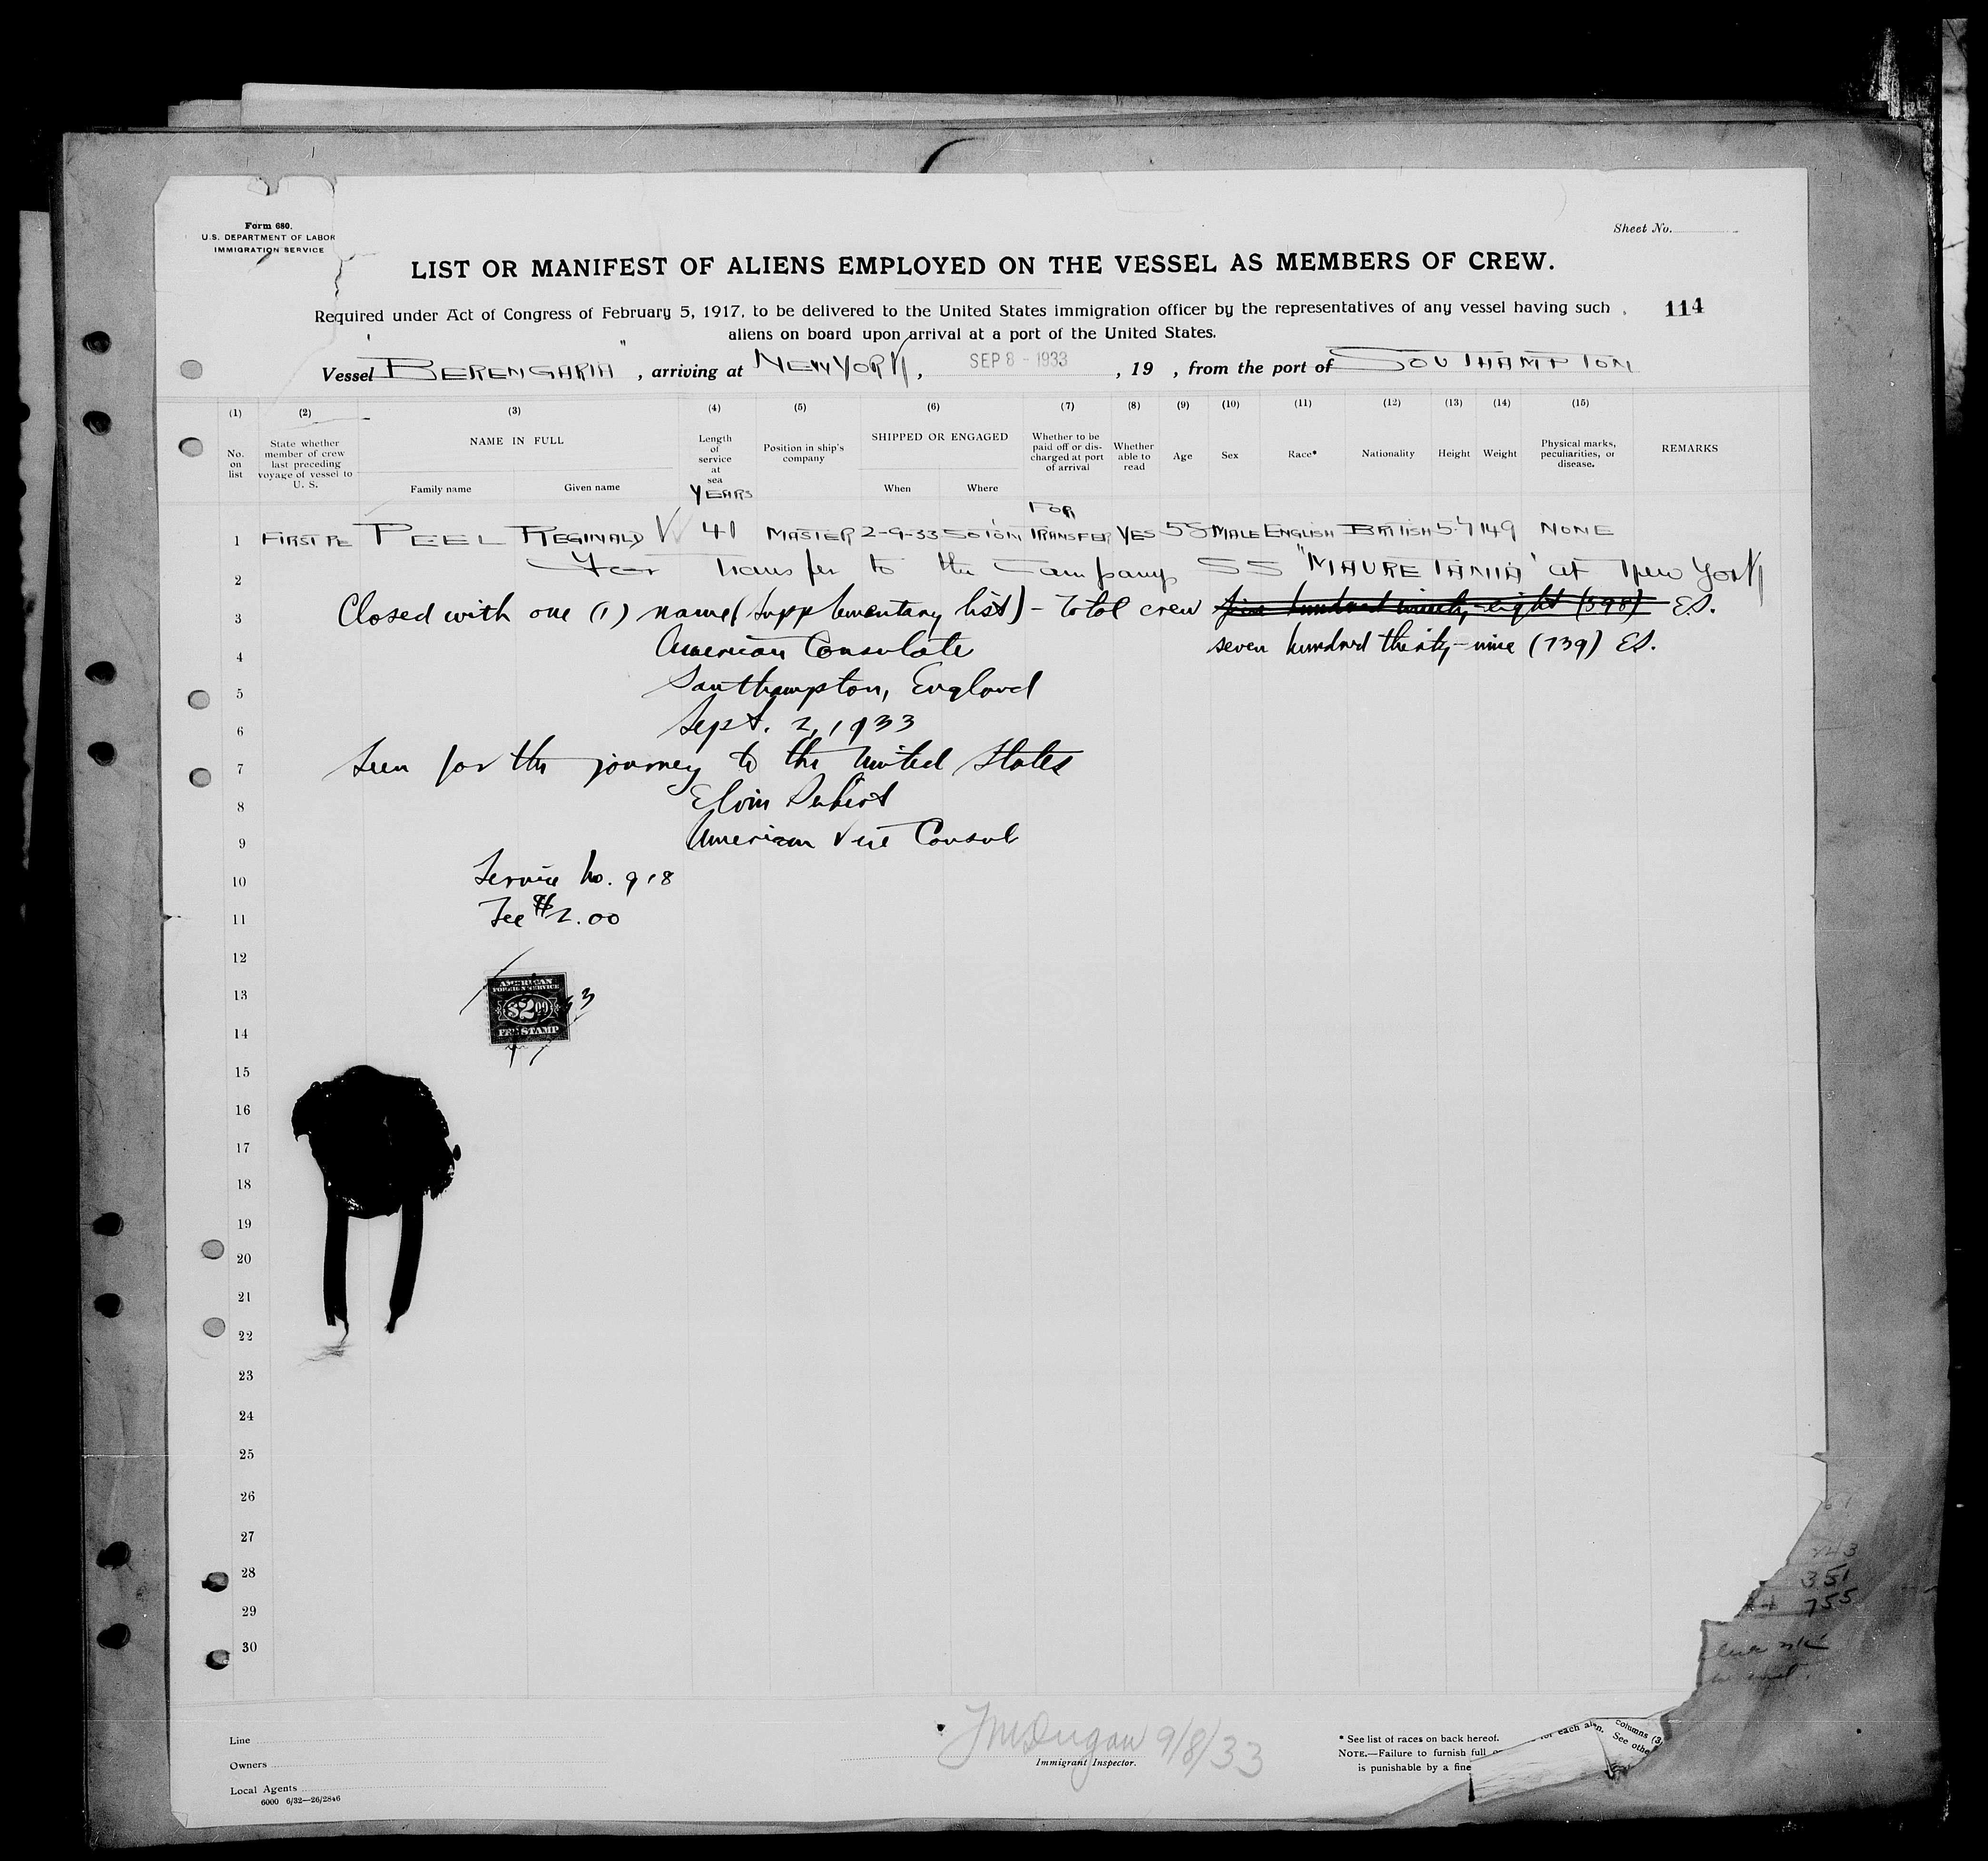 Form 680.
U.S. DEPARTMENT OF LABOR
IMMIGRATION SERVICE
Sheet No.
LIST OR MANIFEST OF ALIENS EMPLOYED ON THE VESSEL AS MEMBERS OF CREW.
Required under Act of Congress of February 5, 1917, to be delivered to the United States immigration officer by the representatives of any vessel having such
aliens on board upon arrival at a port of the United States.
114
Vessel "BERENGARIA", arriving at NEW YORK, SEP 8 - 1933, 19 , from the port of SOUTHAMPTON
(1) (2) (3) (4) (5) (6) (7) (8) (9) (10) (11) (12) (13) (14) (15)
No. on list
State whether member of crew last preceding voyage of vessel to U. S.
NAME IN FULL
Family name
Given name
Length of service at sea
YEARS
Position in ship's company
SHIPPED OR ENGAGED
When
Where
Whether to be paid off or discharged at port of arrival
Whether able to read
Age
Sex
Race*
Nationality
Height
Weight
Physical marks, peculiarities, or disease.
REMARKS
FOR
1 FIRST PE PEEL REGINALD V 41 MASTER 2-9-33 SOTON TRANSFER YES 58 MALE ENGLISH BRITISH 5.7 149 NONE
2 For Transfer to the Company SS "MAURETANIA" at New York
3 Closed with one (1) name (supplementary list) - Total crew five hundred ninety-eight (598) E.S.
4 American Consulate seven hundred thirty-nine (739) ES.
5 Southampton, England
6 Sept. 2, 1933
7 Seen for the journey to the United States
8 Elvin Seibert
9 American Vice Consul
10 Service No. 918
11 Fee $2.00
12
13 AMERICAN
FOREIGN SERVICE
$2.00
33
14 FEE STAMP
15
16
17
18
19
20
21
22
23
24
25
26
27
28
29
30
243
351
755
Line
Owners
Local Agents
6000 6/32—26/2846
9/8/33
Immigrant Inspector.
* See list of races on back hereof.
NOTE.—Failure to furnish full
is punishable by a fine
for each alien.
columns (3
See othe